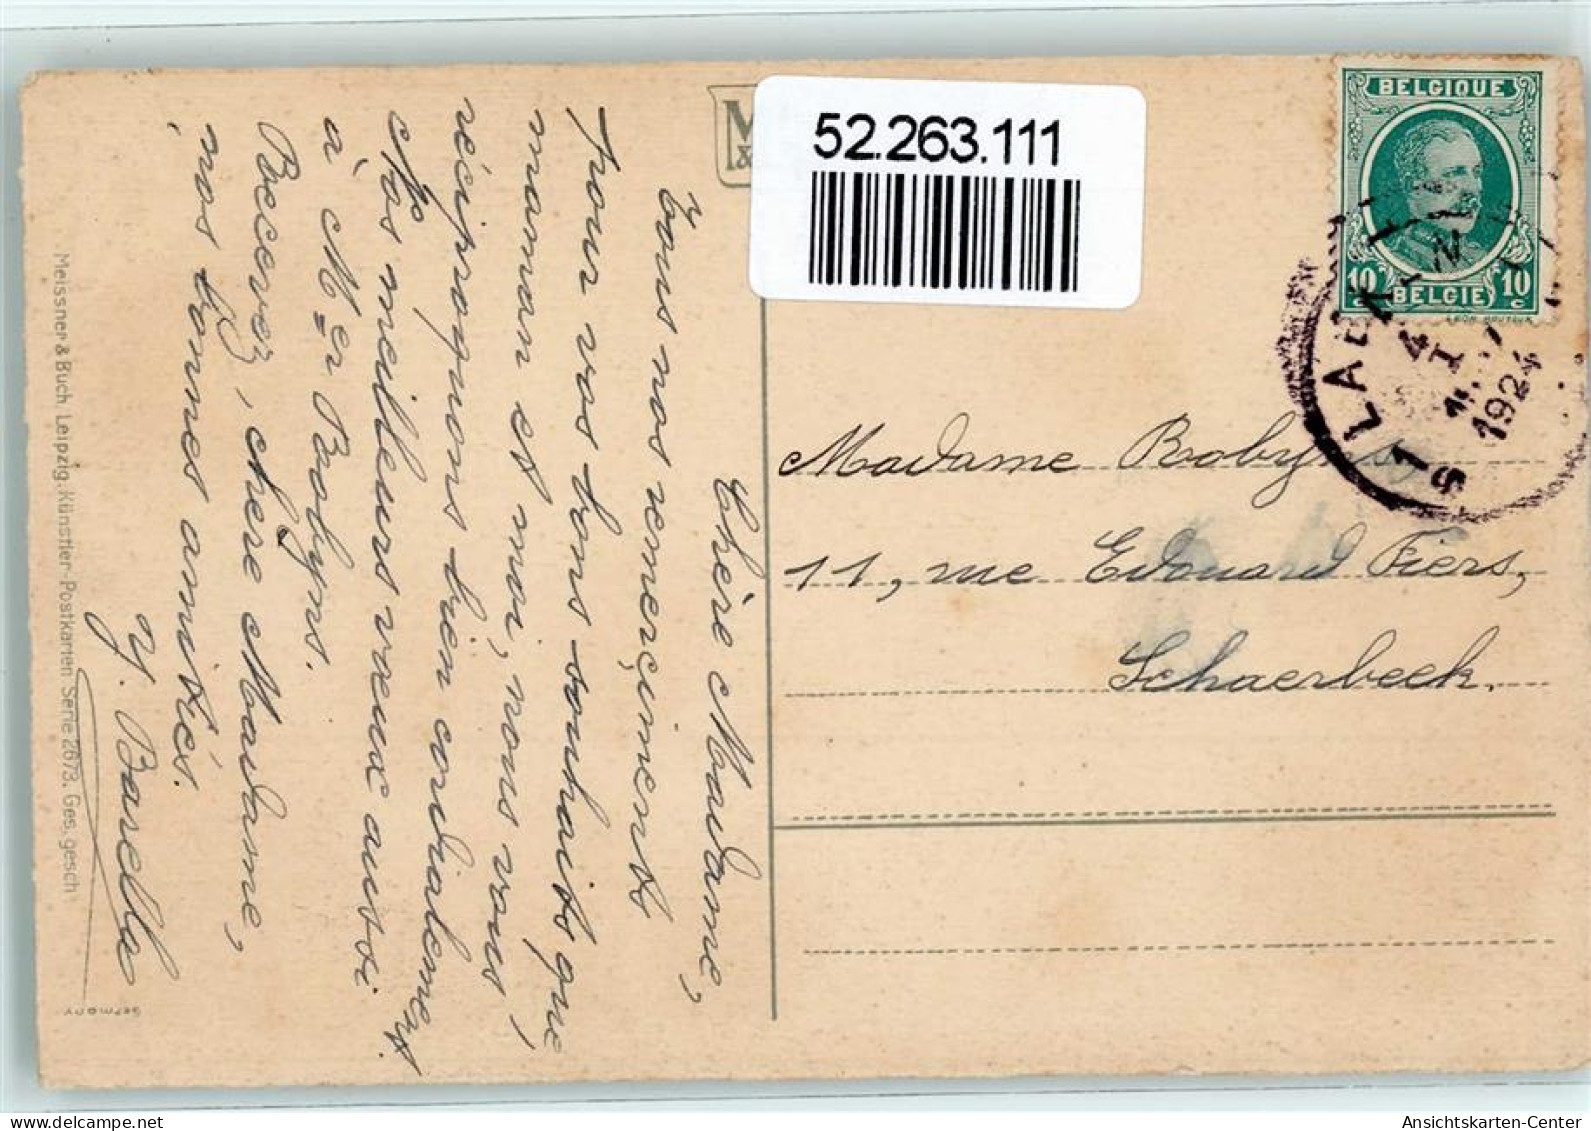 Chère Madame,
Tous nos remerciments
pour vos bons souhaits que
maman et moi, nous vous
réciproquons bien cordialement.
Nos meilleurs vœux aussi
à Mr Robyns.
Recevez, chère Madame,
nos bonnes amitiés.
Y. Barella
Meissner & Buch Leipzig. Künstler-Postkarten Serie 2673. Ges. gesch
Germany
M
&
52.263.111
BELGIQUE
10 c
10 c
BELGIE
1924
Madame Robyns
11, rue Edouard Fiers,
Schaerbeek.
Ansichtskarten-Center